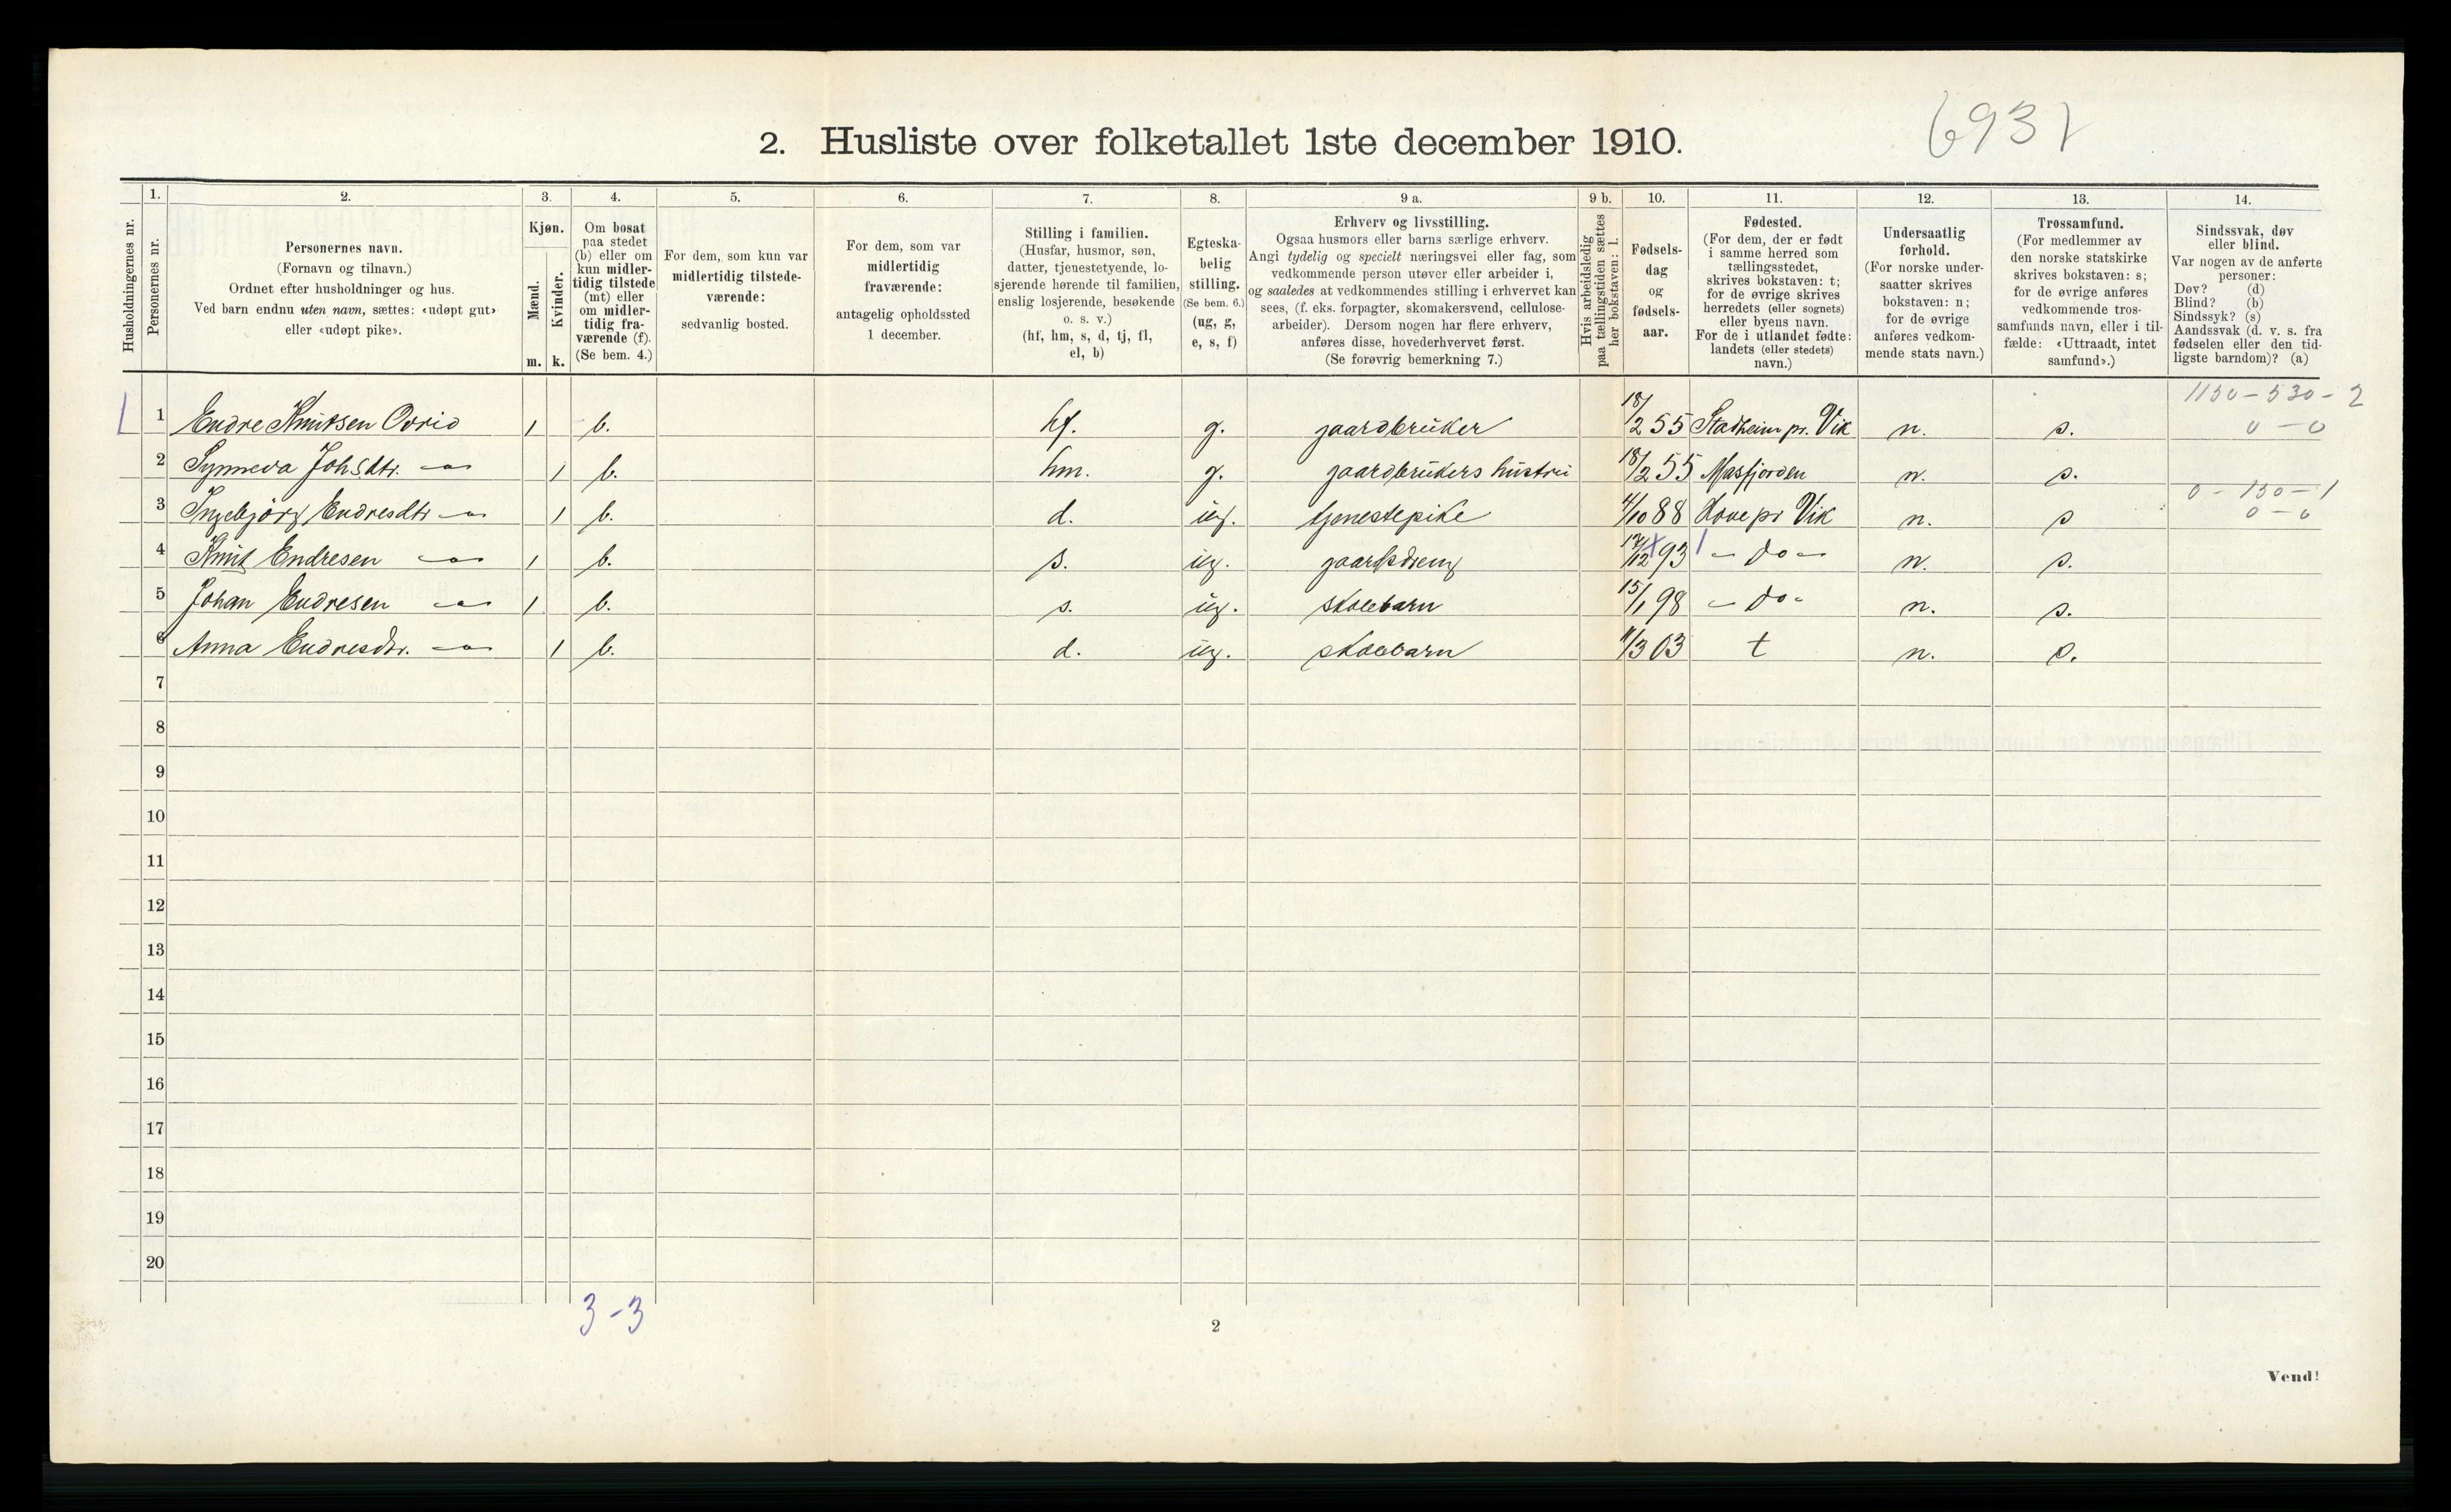 6937
2. Husliste over folketallet 1ste december 1910.
Husholdningernes nr.
1.
Personernes nr.
2.
Personernes navn.
(Fornavn og tilnavn.)
Ordnet efter husholdninger og hus.
Ved barn endnu uten navn, sættes: «udøpt gut»
eller «udøpt pike».
3.
Kjøn.
Mænd.
Kvinder.
m. k.
4.
Om bosat
paa stedet
(b) eller om
kun midler-
tidig tilstede
(mt) eller
om midler-
tidig fra-
værende (f).
(Se bem. 4.)
5.
For dem, som kun var
midlertidig tilstede-
værende:
sedvanlig bosted.
6.
For dem, som var
midlertidig
fraværende:
antagelig opholdssted
1 december.
7.
Stilling i familien.
(Husfar, husmor, søn,
datter, tjenestetyende, lo-
sjerende hørende til familien,
enslig losjerende, besøkende
o. s. v.)
(hf, hm, s, d, tj, fl,
el, b)
8.
Egteska-
belig
stilling.
(Se bem. 6.)
(ug, g,
e, s, f)
9 a.
Erhverv og livsstilling.
Ogsaa husmors eller barns særlige erhverv.
Angi tydelig og specielt næringsvei eller fag, som
vedkommende person utøver eller arbeider i,
og saaledes at vedkommendes stilling i erhvervet kan
sees, (f. eks. forpagter, skomakersvend, cellulose-
arbeider). Dersom nogen har flere erhverv,
anføres disse, hovederhvervet først.
(Se forøvrig bemerkning 7.)
9 b.
Hvis arbeidsledig
paa tællingstiden sættes
her bokstaven: l.
10.
Fødsels-
dag
og
fødsels-
aar.
11.
Fødested.
(For dem, der er født
i samme herred som
tællingsstedet,
skrives bokstaven: t;
for de øvrige skrives
herredets (eller sognets)
eller byens navn.
For de i utlandet fødte:
landets (eller stedets)
navn.)
12.
Undersaatlig
forhold.
(For norske under-
saatter skrives
bokstaven: n;
for de øvrige
anføres vedkom-
mende stats navn.)
13.
Trossamfund.
(For medlemmer av
den norske statskirke
skrives bokstaven: s;
for de øvrige anføres
vedkommende tros-
samfunds navn, eller i til-
fælde: «Uttraadt, intet
samfund».)
14.
Sindssvak, døv
eller blind.
Var nogen av de anførte
personer:
Døv? (d)
Blind? (b)
Sindssyk? (s)
Aandssvak (d. v. s. fra
fødselen eller den tid-
ligste barndom)? (a)
1150 - 530 - 2
1 Endre Knutsen Orrid 1 b. hf. g. gaardbruker 18/2 55 Stadheim pr. Vik n. s. 0 - 0
2 Synneva Johsdtr. -"- 1 b. hm. g. gaardbrukers hustru 18/2 55 Masfjorden n. s.
0 - 150 - 1
3 Ingebjörg Endresdtr -"- 1 b. d. ug. tjenestepike 4/10 88 Hove pr Vik n. s 0 - 0
4 Knut Endresen -"- 1 b. s. ug. gaardsdreng 17/12 93 - do - n. s.
5 Johan Endresen -"- 1 b. s. ug. skolebarn 15/1 98 - do - n. s.
6 Anna Endresdtr. -"- 1 b. d. ug. skolebarn 11/3 03 t n. s.
7
8
9
10
11
12
13
14
15
16
17
18
19
20
3 - 3
2
Vend!